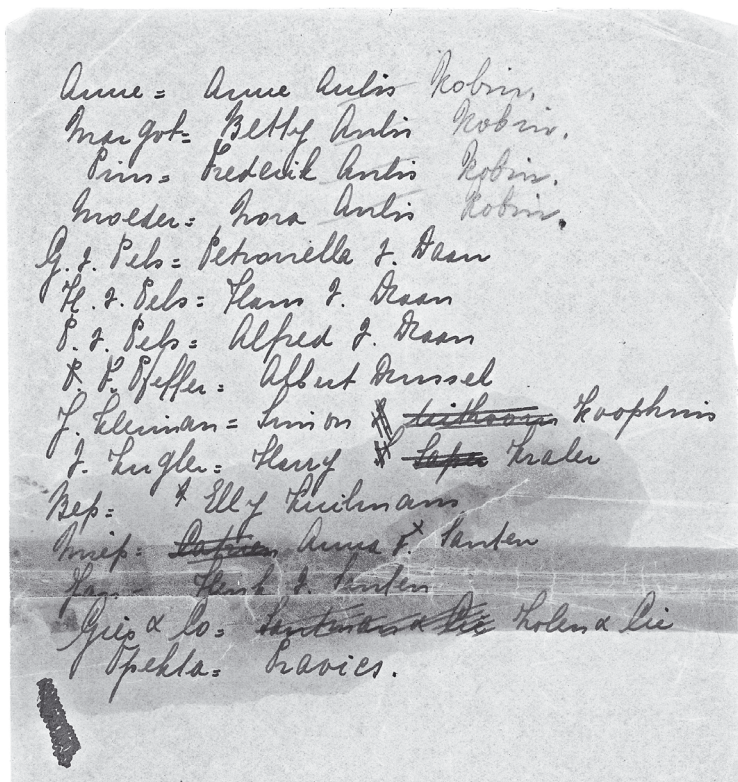 Anne = Anne Aulis Robin.
Margot = Betty Aulis Robin.
Pim = Frederik Aulis Robin.
Moeder = Nora Aulis Robin.
G. v. Pels = Petronella v. Daan
H. v. Pels = Hans v. Daan
P. v. Pels = Alfred v. Daan
F. Pfeffer = Albert Dussel
J. Kleiman = Simon Koophuis
V. Kugler = Harry Kraler
Bep = Elly Kuilmans
Miep = Anna v. Santen
Jan = Henk v. Santen
Gies & Co = Kolen & Cie
Opekta = Travies.